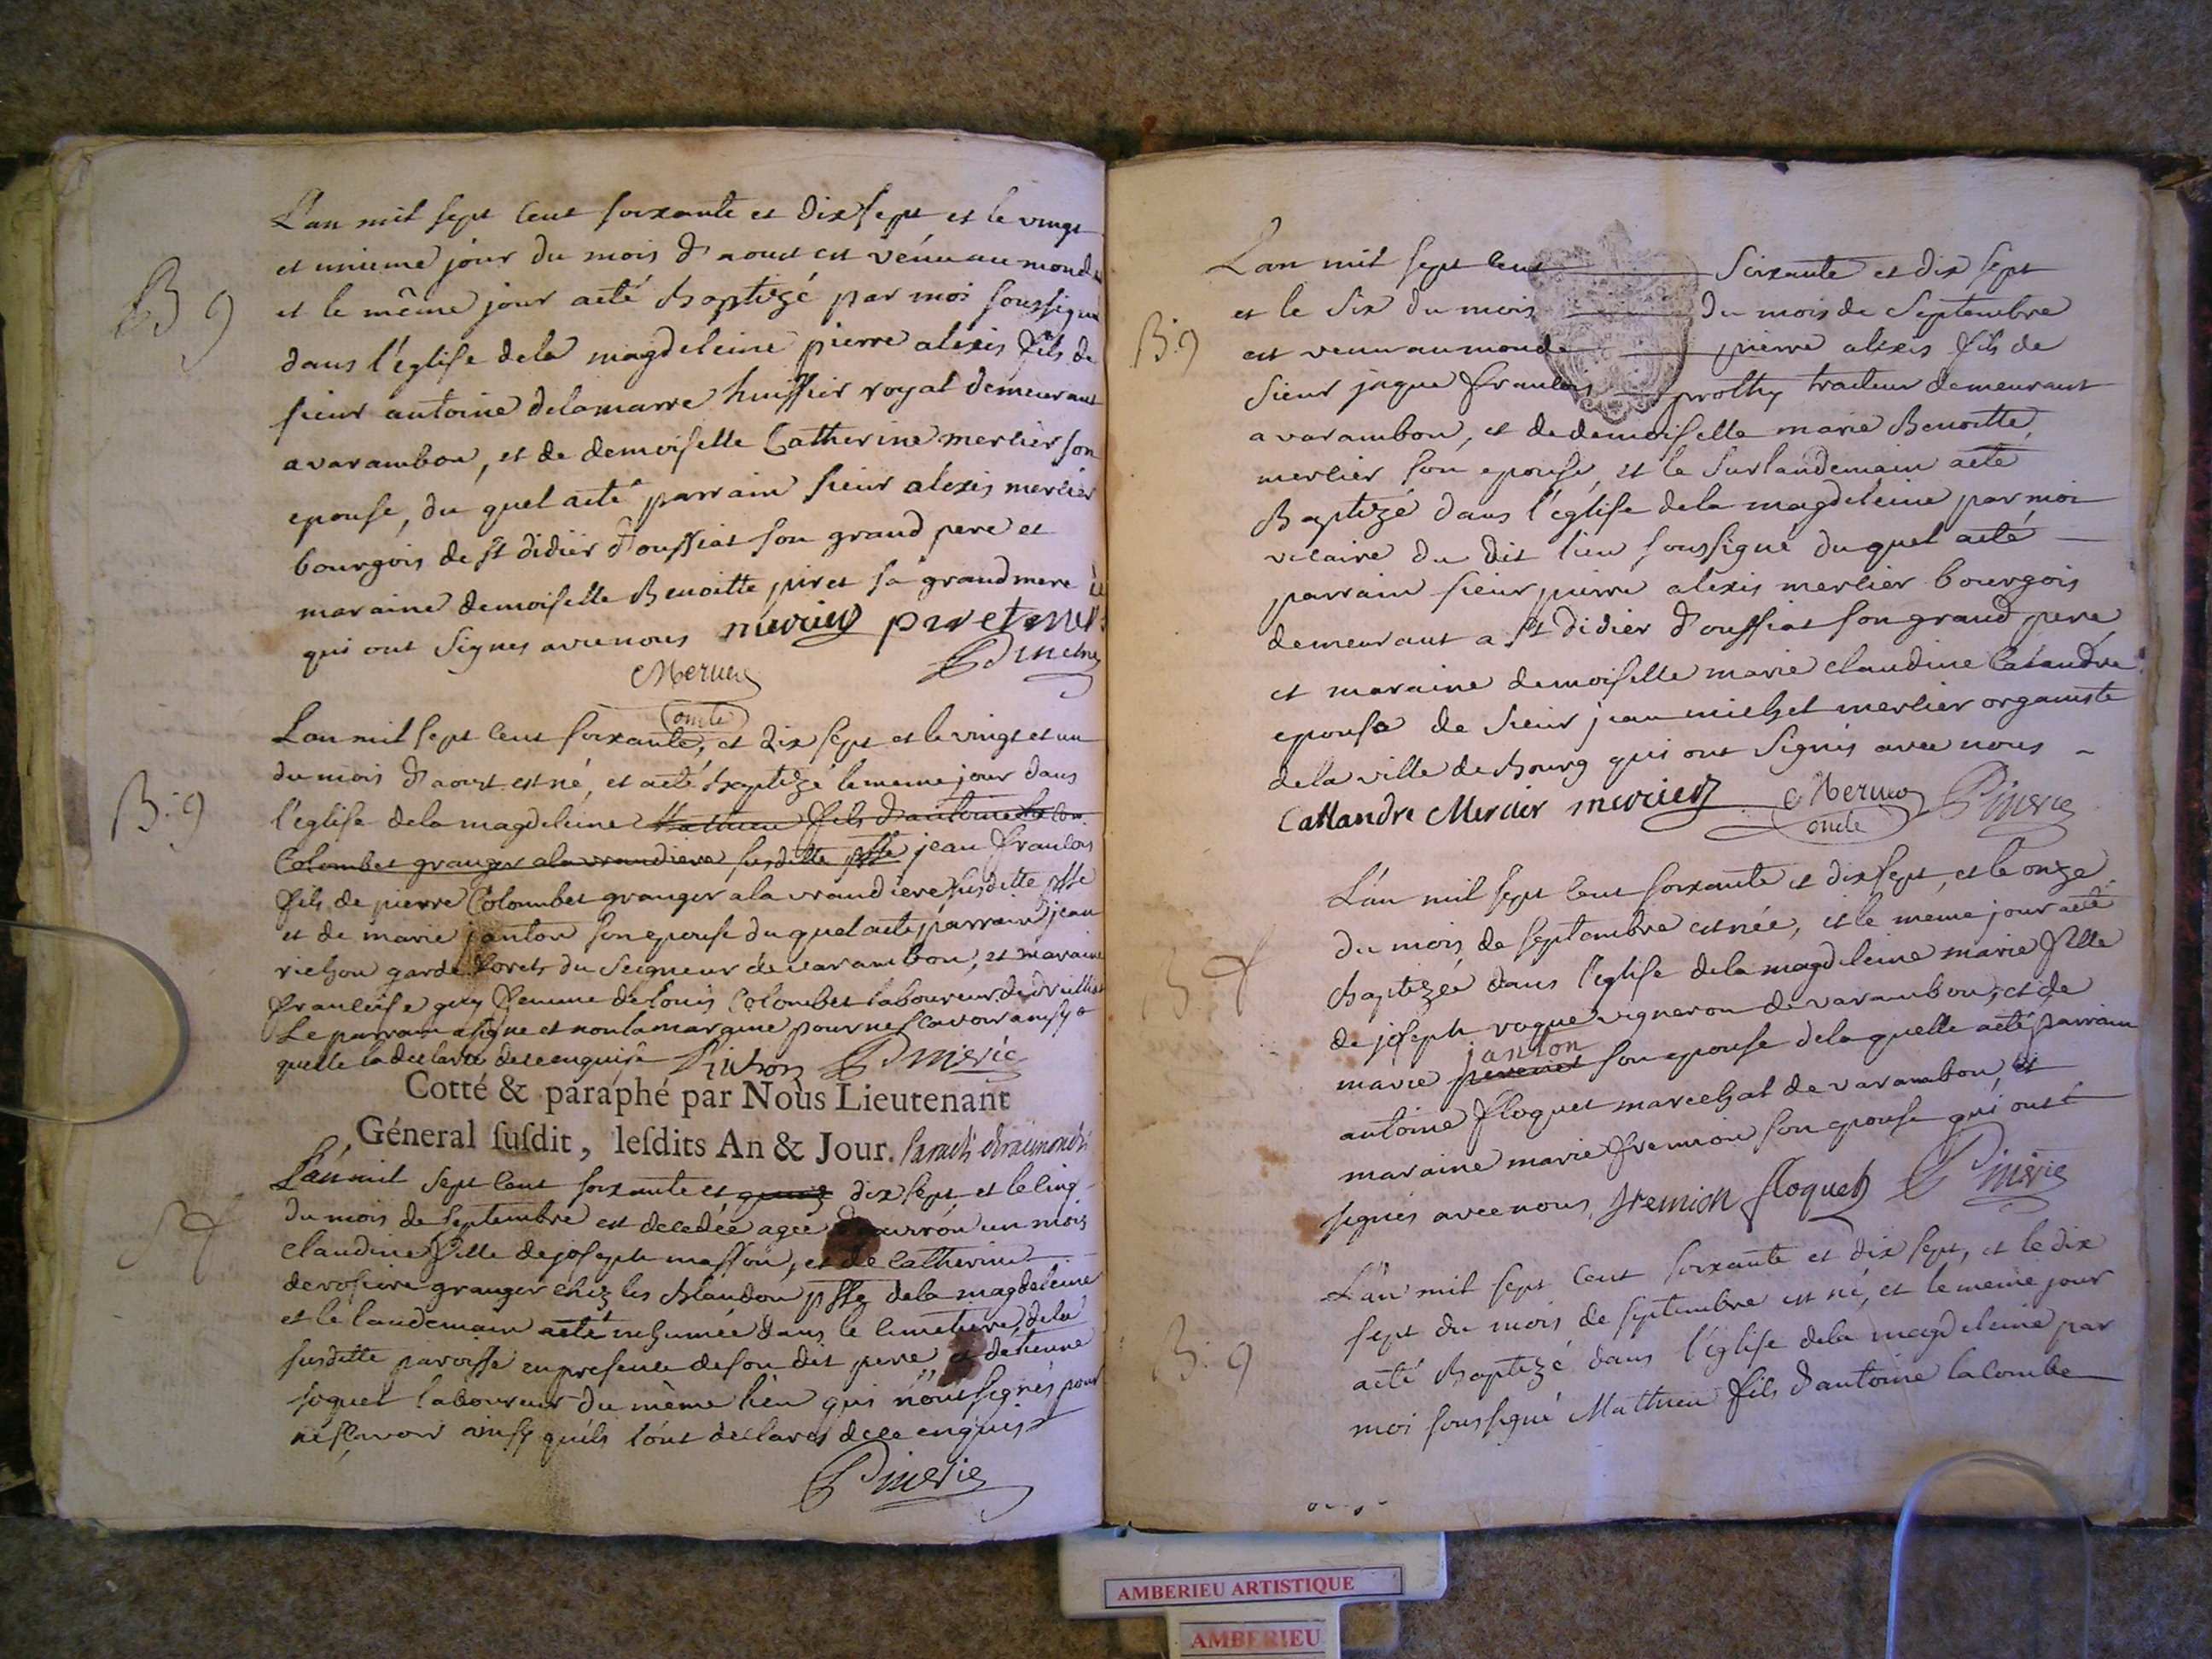 B g
L'an mil sept cent soixante et dix sept et le vingt
et unieme jour du mois d'aoust est venu au monde
et le même jour aeté baptizé par mois soussigné
dans l'église dela magdeleine pierre alexis fils de
sieur antoine delamarre huissier royal demeurant
a varambon, et de demoiselle Catherine mercier son
epouse, du quel aeté parrain sieur alexis mercier
bourgois de st didier d'oussiat son grand pere et
maraine demoiselle Benoitte piret sa grand mere
qui ont signes avec nous mercier piret
Mercier
oncle
B. g
L'an mil sept cent soixante, et dix sept et le vingt et un
du mois d'aoust est né, et aeté baptizé le meme jour dans
l'église dela magdeleine Mathieu fils d'antoine
Colombet granger ala vrandiere susditte psse jean francois
fils de pierre Colombet granger ala vrandiere susditte psse
et de marie janton son epouse du quel aeté parrain jean
richon garde forets du Seigneur de varambon, et maraine
francoise guy femme de louis Colombet laboureur de
Le parrain a signe et non la maraine pour ne scavoir ainsy
quelle la declaré de ce enquise Richon
Cotté & paraphé par Nous Lieutenant
Géneral susdit, lesdits An & Jour.
S f
L'an mil sept cent soixante et dix sept, et le cinq
du mois de septembre est decedée agee d'environ un mois
claudine fille de joseph masson, et de Catherine
derosiere granger chez les blandon psse dela magdeleine
et le landemain aeté inhumée dans le cimetiere dela
susditte paroisse en presence de son dit pere et d'etienne
soquet laboureur du même lieu qui n'ont signés pour
ne scavoir ainsy qu'ils l'ont declarés de ce enquis
B. g
L'an mil sept cent soixante et dix sept
et le six du mois du mois de septembre
est venu au monde pierre alexis fils de
sieur jaque francois prothy traiteur demeurant
a varambon, et de demoiselle marie Benoitte
mercier son epouse, et le surlandemain aeté
Baptizé dans l'église dela magdeleine par moi
vicaire du dit lieu soussigné duquel aeté
parrain sieur pierre alexis mercier bourgois
demeurant a st didier d'oussiat son grand pere
et maraine demoiselle marie claudine Casandre
epouse de sieur jean michel mercier organiste
dela ville de bourg qui ont signés avec nous
Cassandre Mercier mercier Mercier
oncle
S f
L'an mil sept cent soixante et dix sept, et le onze
du mois de septembre est née, et le meme jour aeté
baptizée dans l'église dela magdeleine marie fille
de joseph vogue vigneron de varambon, et de
janton
marie perenet son epouse dela quelle aeté parrain
antoine floquet marechal de varambon, et
maraine marie fremion son epouse qui ont
signés avec nous, fremion floquet
B. g
L'an mil sept cent soixante et dix sept, et le dix
sept du mois de septembre est né, et le meme jour
aeté baptizé dans l'église dela magdeleine par
moi soussigné Mathieu fils d'antoine lacombe
AMBERIEU ARTISTIQUE
AMBERIEU